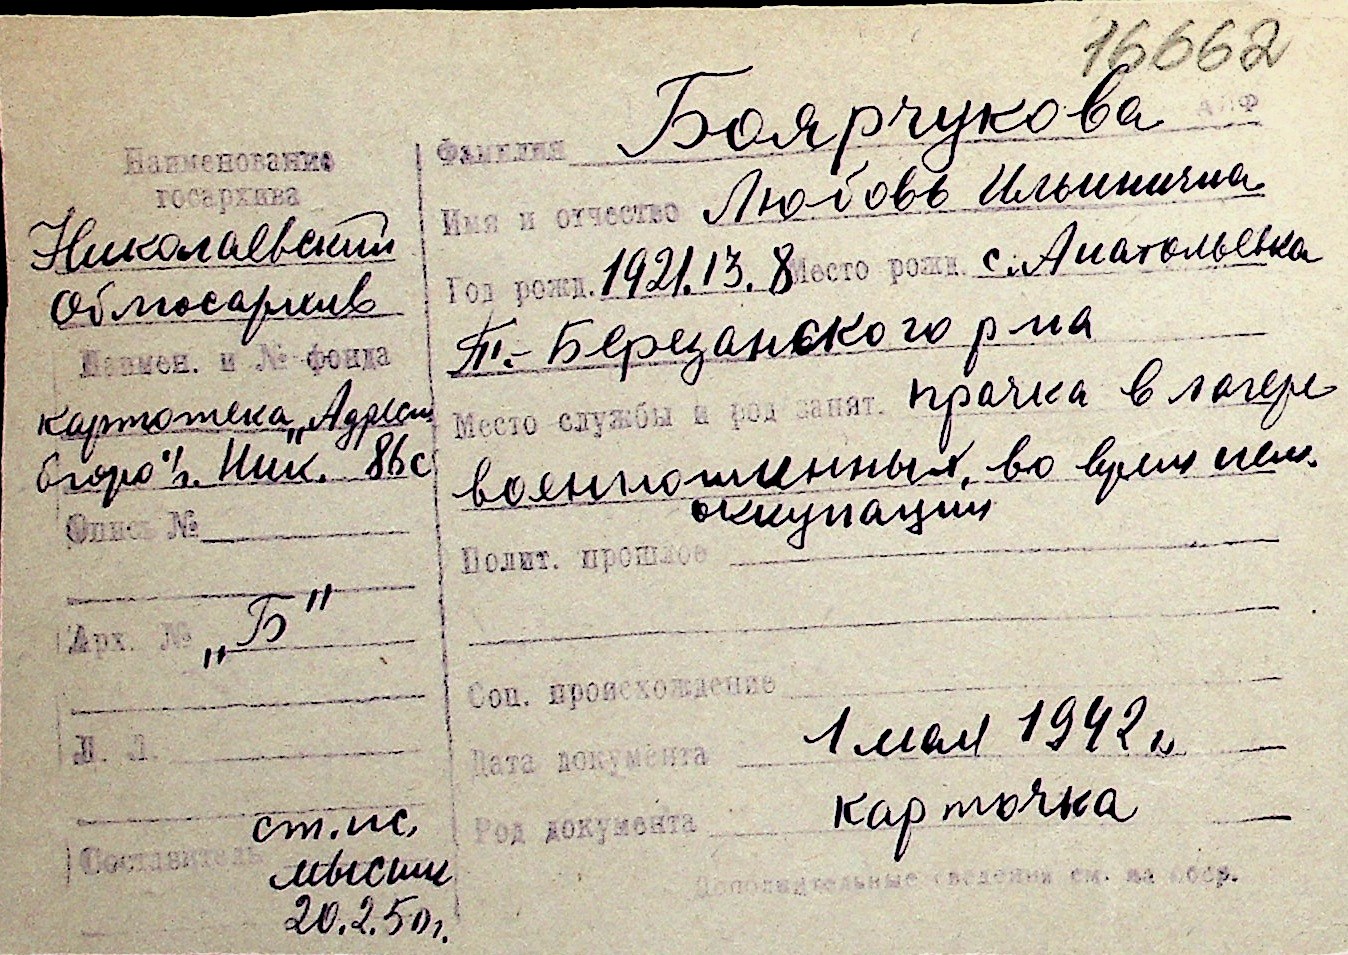 16662
АПФ
Наименование
госархива
Николаевский
Облгосархив
Наимен. и № фонда
картотека "Адресн
бюро" г. Ник. 86с
Опись №
Арх. № „Б"
Л. Л.
Составитель ст. нс.
20.2.50г.
Фамилия Боярчукова
Имя и отчество Любовь Ильинична
Год рожд. 1921.13.8 Место рожд. с. Анатольевка
Т.-Березанского р на
Место службы и род занят. прачка в лагере
военнопленных, во время нем.
оккупации
Полит. прошлое
Соц. происхождение
Дата документа 1 мая 1942 г.
Род документа карточка
Дополнительные сведения см. на обор.